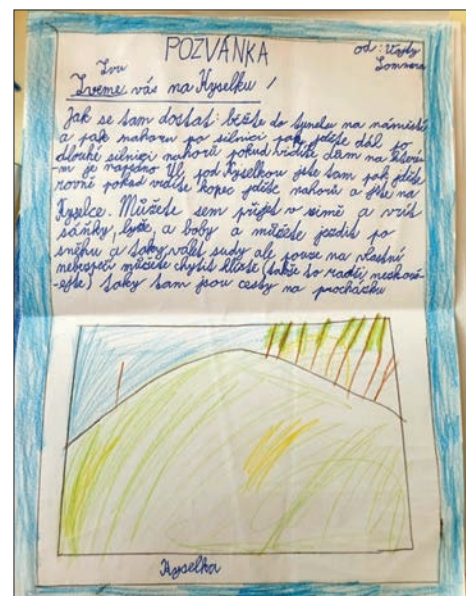 POZVÁNKA
od: Vendy
Lomnera
Zvu
Zveme vás na Kyselku!
Jak se tam dostat: běžte do tunelu na náměstí
a pak nahoru po silnici pak jděte dál po
dlouhé silnici nahorů pokud vidíte dům na které-
m je napsáno Ul. pod Kyselkou jste tam pak jděte
rovně pokud vidíte kopec jděte nahorů a jste na
Kyselce. Můžete sem přijet v zimě a vzít
sáňky, lyže, a boby a můžete jezdit po
sněhu a taky válet sudy ale pouze na vlastní
nebezpečí můžete chytit klíště (takže to radši neskouš-
-ejte) taky tam jsou cesty na procházku
Kyselka